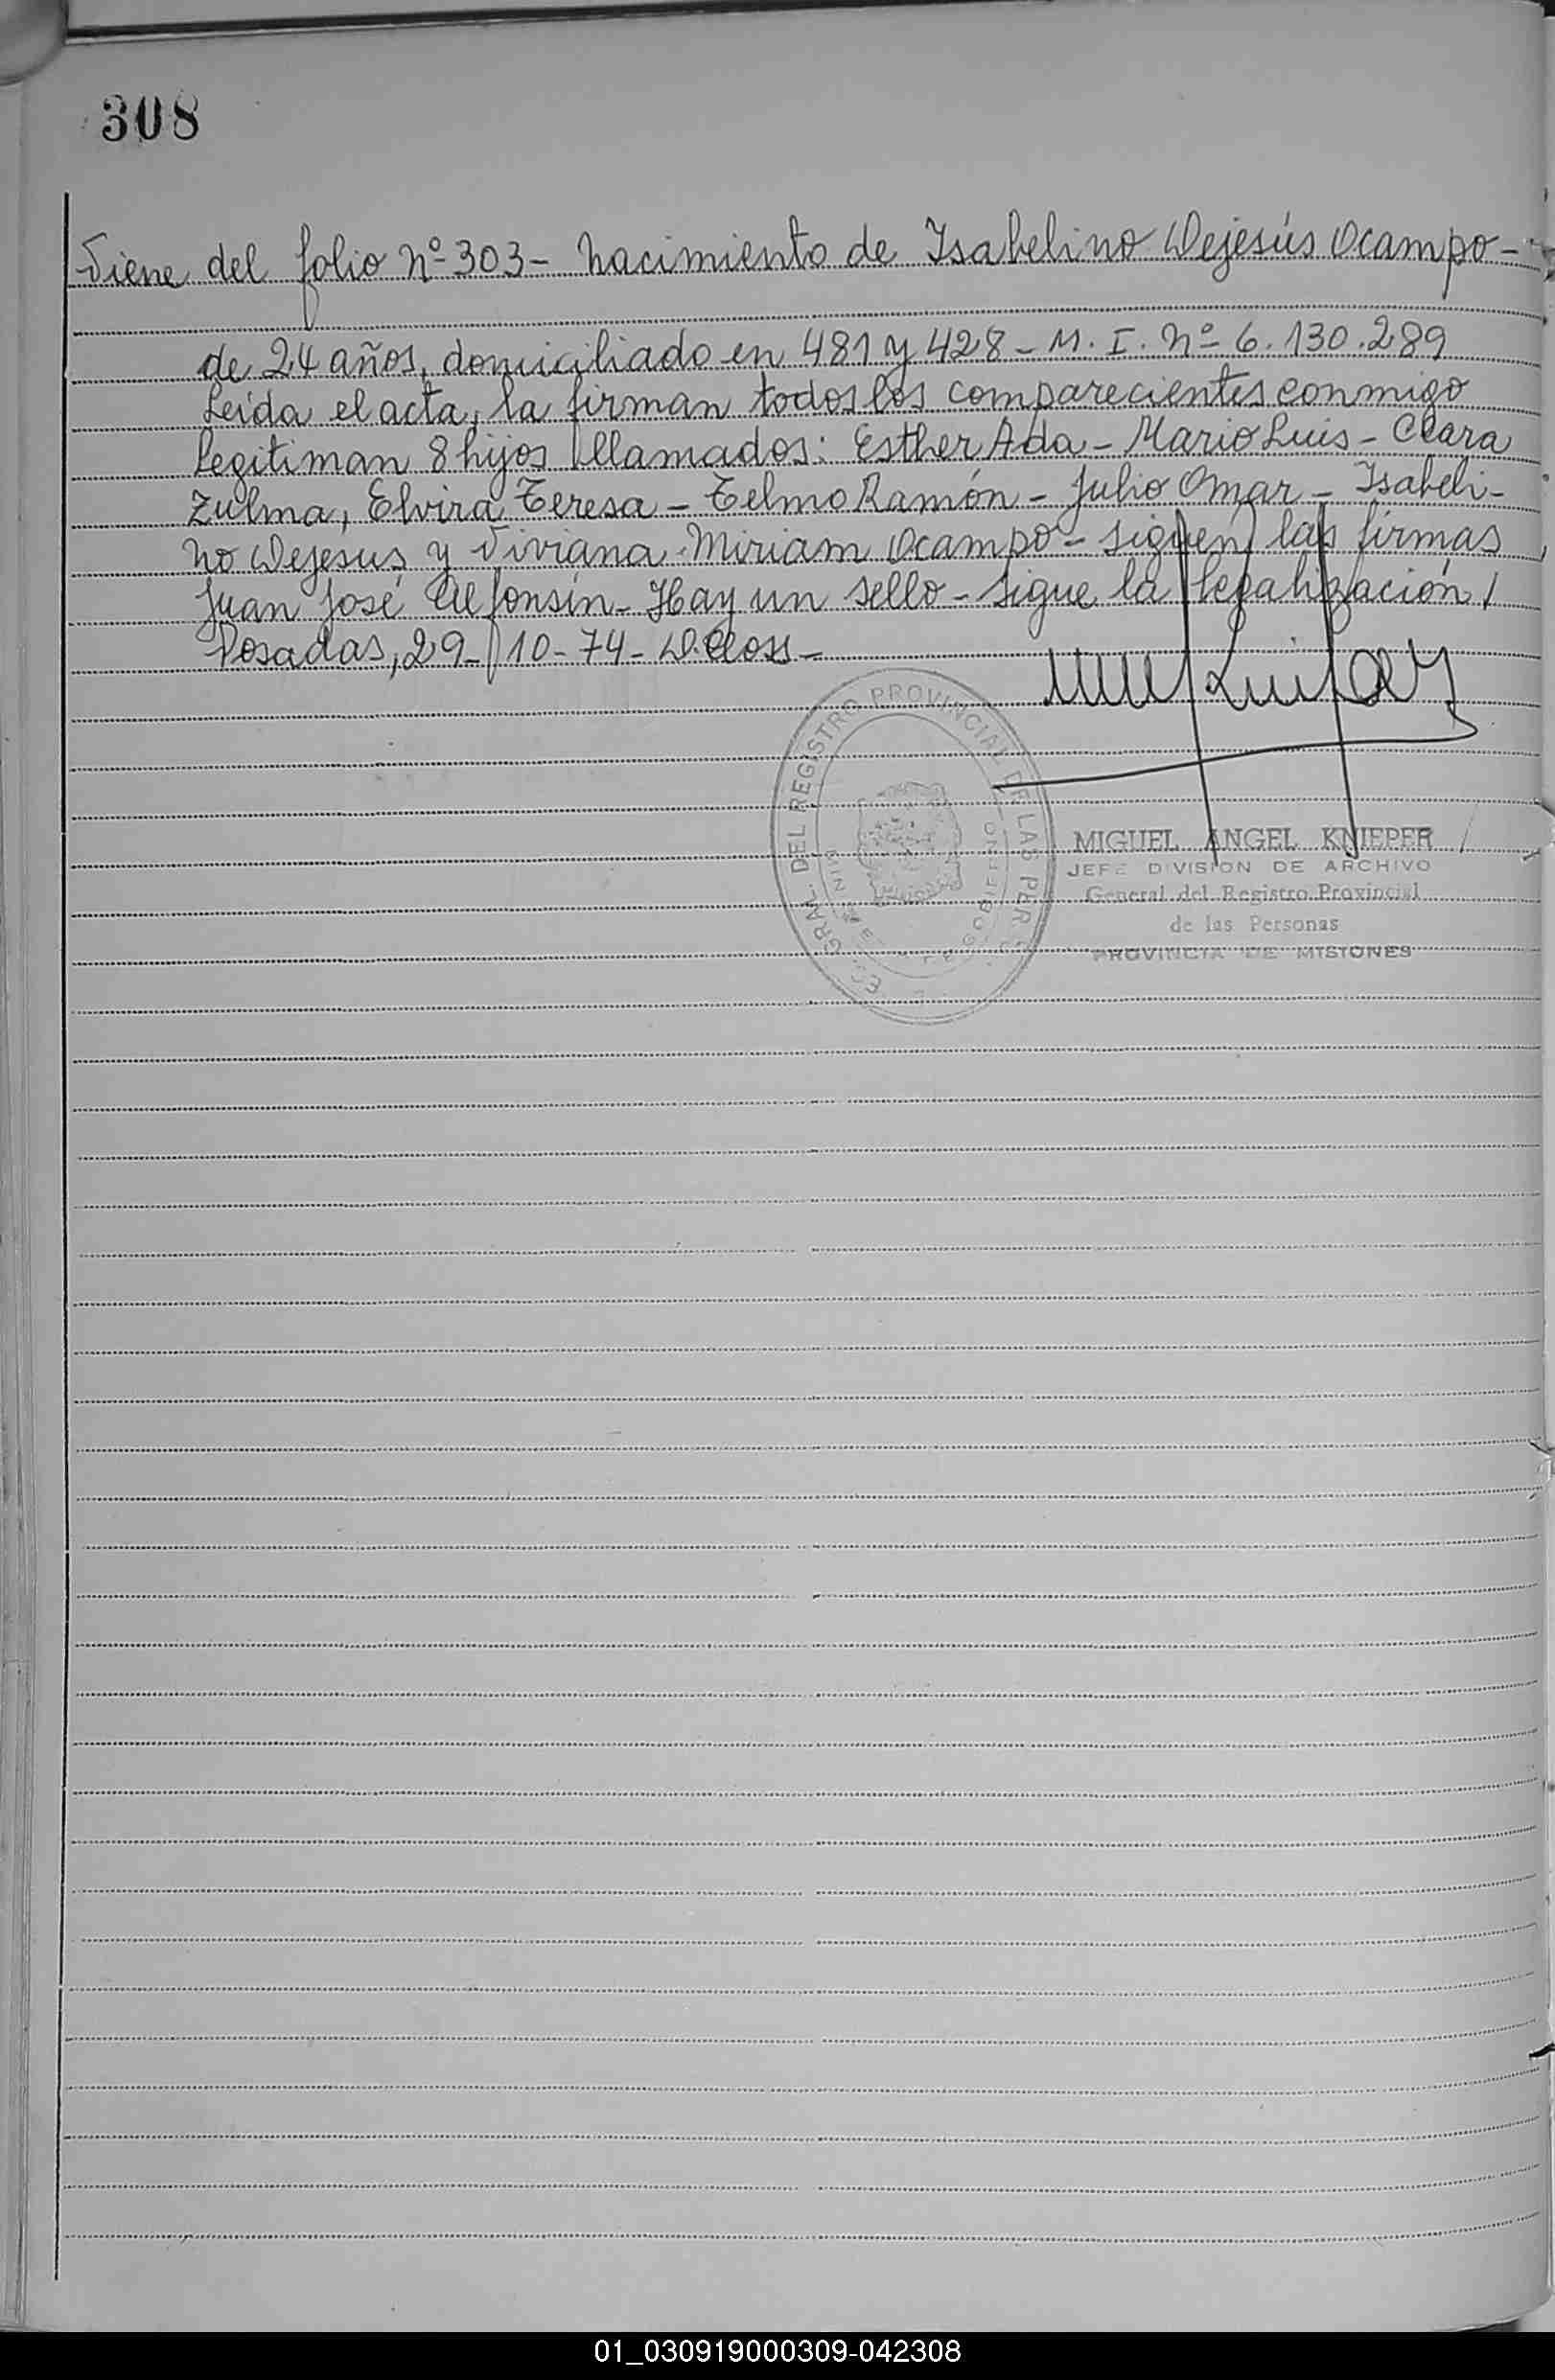 308
Viene del folio Nº 303 - Nacimiento de Isabelino Dejesús Ocampo -
de 24 años, domiciliado en 481 y 428 - M. I. Nº 6.130.289
Leída el acta, la firman todos los comparecientes conmigo
Legitiman 8 hijos llamados: Esther Ada - Mario Luis - Clara
Zulma, Elvira Teresa - Telmo Ramón - Julio Omar - Isabeli-
no Dejesús y Viviana Miriam Ocampo - siguen las firmas
Juan José Alfonsín - Hay un sello - Sigue la legalización /
Posadas, 29 - 10 - 74 - D. Closs -
GRAL. DEL REGISTRO PROVINCIAL DE LAS PER
DE GOBIERNO
MIGUEL ANGEL KNIEPER
JEFE DIVISION DE ARCHIVO
General del Registro Provincial
de las Personas
PROVINCIA DE MISIONES
01_030919000309-042308